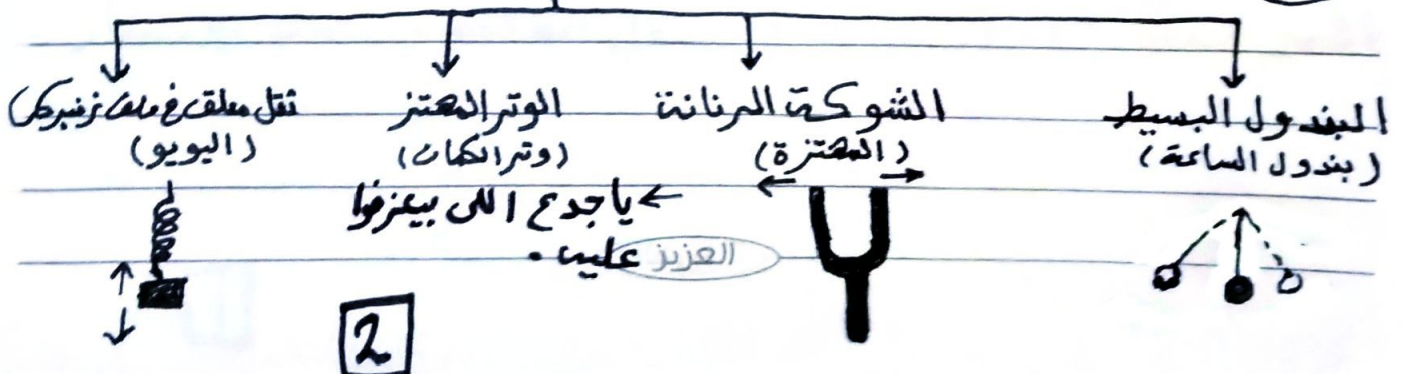 البندول البسيط
(بندول الساعة)
الشوكة الرنانة
(المهتزة)
الوتر المهتز
(وتر الكمان)
← يا جدع اللى بيعزفوا
عليه.
العزيز
ثقل معلق فى ملف زنبركى
(اليويو)
2